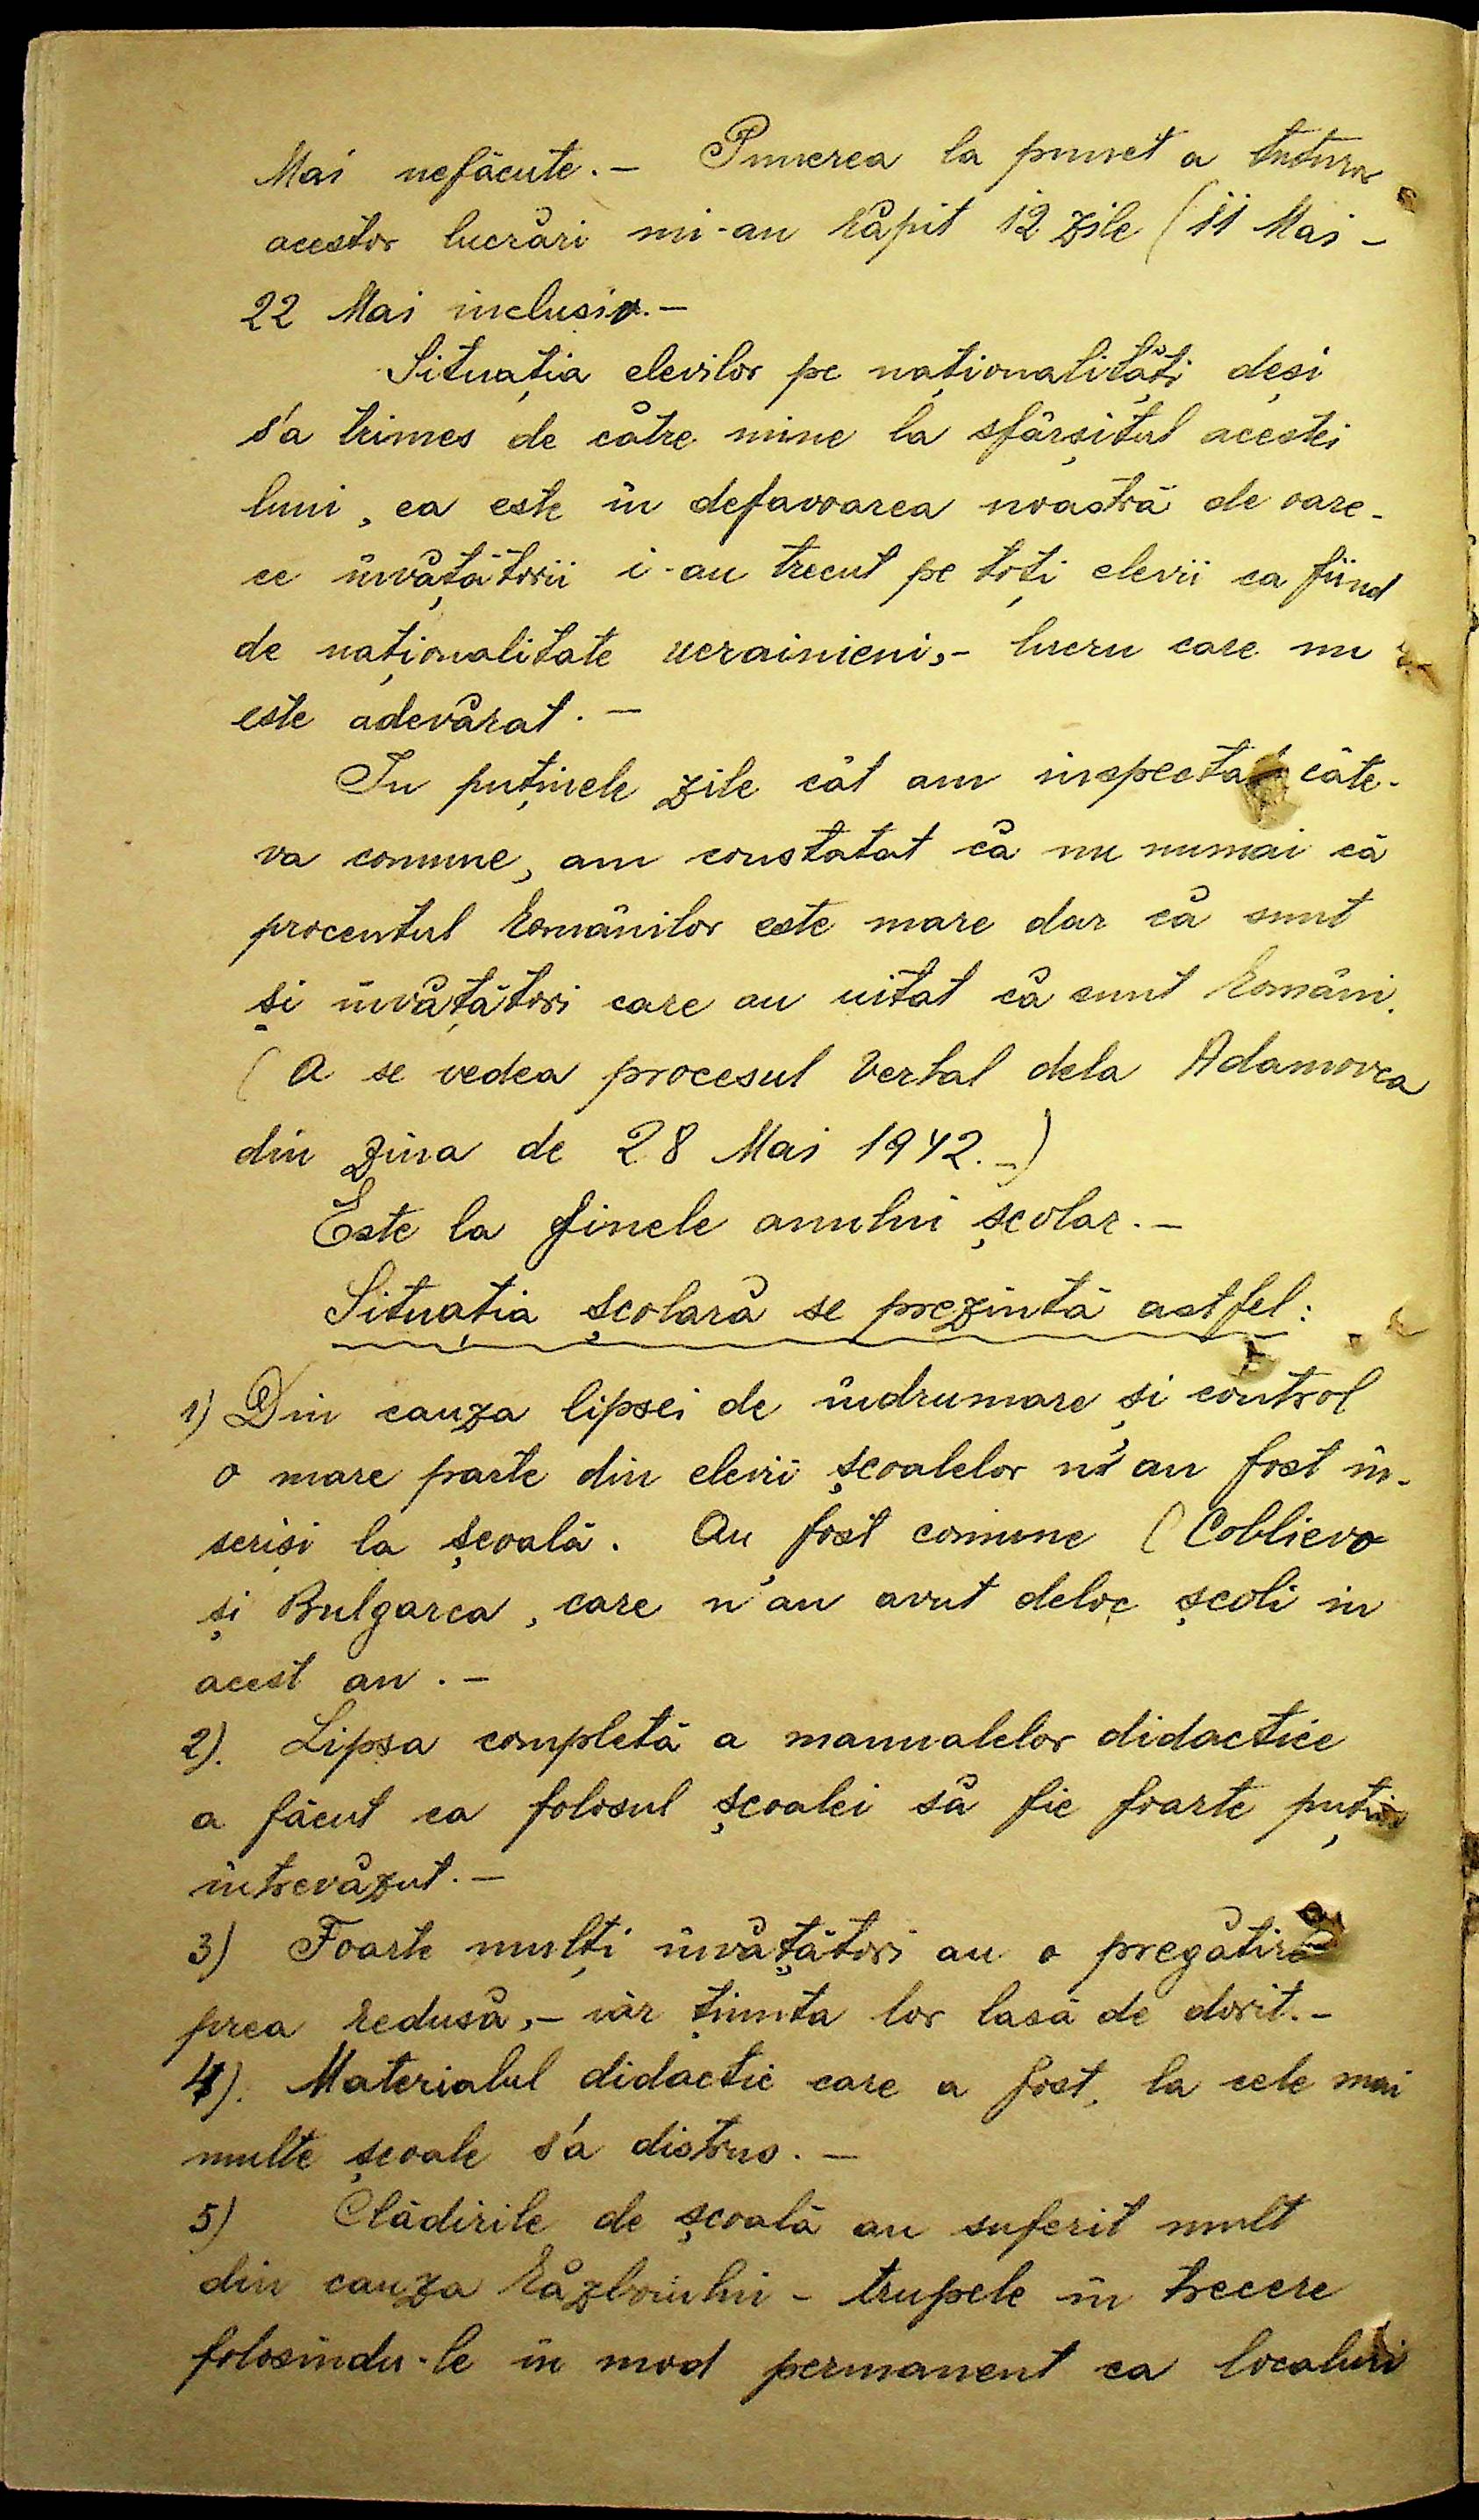 Mai nefăcute.- Punerea la punct a tuturor
acestor lucrări mi-au răpit 12 zile (11 Mai -
22 Mai inclusiv.-
Situația elevilor pe naționalități deși
s'a trimes de către mine la sfârșitul acestei
luni, ea este în defavoarea noastră de oare-
ce învățătorii i-au trecut pe toți elevii ca fiind
de naționalitate ucrainieni,- lucru care nu
este adevărat.-
In puținele zile cât am inspectat câte-
va comune, am constatat că nu numai că
procentul Românilor este mare dar că sunt
și învățători care au uitat că sunt Români.
(A se vedea procesul verbal dela Adamovca
din ziua de 28 Mai 1942.-)
Este la finele anului școlar.-
Situația școlară se prezintă astfel:
1) Din cauza lipsei de îndrumare și control
o mare parte din elevii școalelor n'au fost în-
scriși la școală. Au fost comune (Coblievo
și Bulgarca, care n'au avut deloc școli in
acest an.-
2). Lipsa completă a manualelor didactice
a făcut ca folosul școalei să fie foarte puțin
întrevăzut.-
3) Foarte mulți învățători au o pregătire
prea redusă,- iar ținuta lor lasă de dorit.-
4). Materialul didactic care a fost, la cele mai
multe școale s'a distrus.-
5) Clădirile de școală au suferit mult
din cauza războiului - trupele în trecere
folosindu-le în mod permanent ca localuri